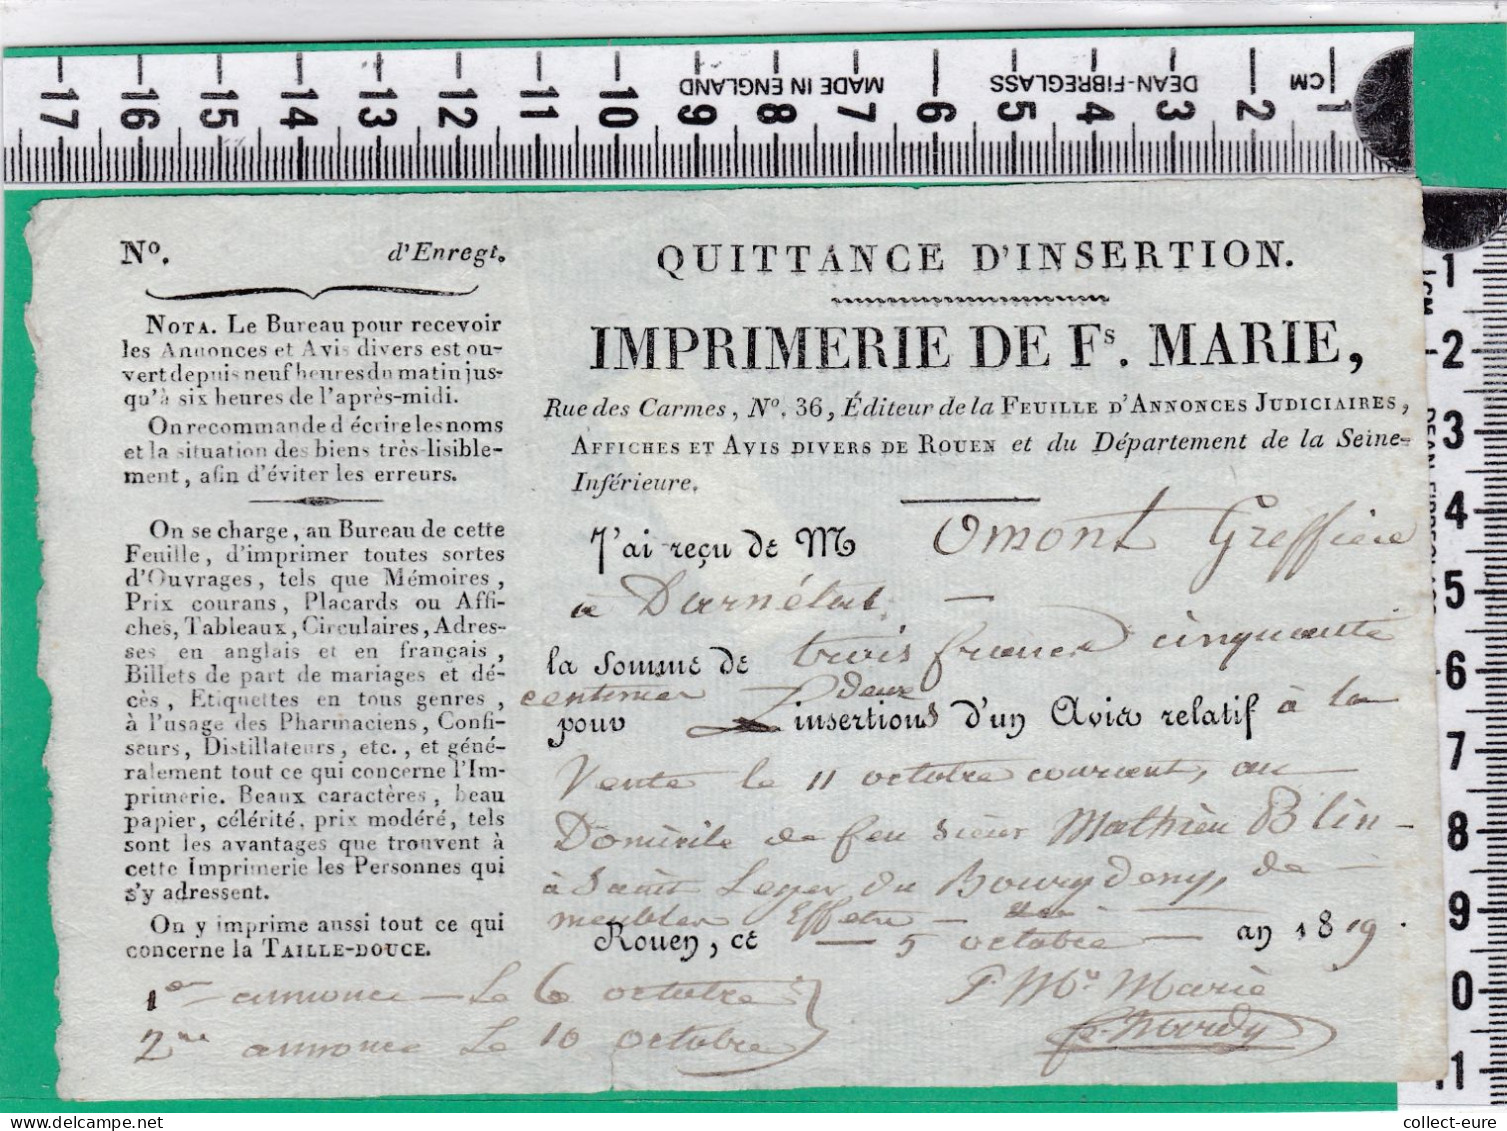 17 16 15 14 13 12 11 10 9 8 7 6 5 4 3 2 1
MADE IN ENGLAND
DEAN-FIBREGLASS
CM
Nº. d'Enregt.
NOTA. Le Bureau pour recevoir
les Annonces et Avis divers est ou-
vert depuis neuf heures du matin jus-
qu'à six heures de l'après-midi.
On recommande d'écrire les noms
et la situation des biens très-lisible-
ment, afin d'éviter les erreurs.
On se charge, au Bureau de cette
Feuille, d'imprimer toutes sortes
d'Ouvrages, tels que Mémoires,
Prix courans, Placards ou Affi-
ches, Tableaux, Circulaires, Adres-
ses en anglais et en français,
Billets de part de mariages et dé-
cès, Etiquettes en tous genres,
à l'usage des Pharmaciens, Confi-
seurs, Distillateurs, etc., et géné-
ralement tout ce qui concerne l'Im-
primerie. Beaux caractères, beau
papier, célérité, prix modéré, tels
sont les avantages que trouvent à
cette Imprimerie les Personnes qui
s'y adressent.
On y imprime aussi tout ce qui
concerne la TAILLE-DOUCE.
QUITTANCE D'INSERTION.
IMPRIMERIE DE Fs. MARIE,
Rue des Carmes, Nº. 36, Éditeur de la FEUILLE D'ANNONCES JUDICIAIRES,
AFFICHES ET AVIS DIVERS DE ROUEN et du Département de la Seine-
Inférieure.
J'ai reçu de M Omont Greffier
à Darnétal
la somme de trois francs cinquante
centimes
pour deux insertions d'un Avis relatif à la
Vente le 11 octobre courant, au
Domicile de feu sieur Mathieu Blin
à Saint Leger du Bourgdeny, de
meubles Effets
Rouen, ce 5 octobre an 1819.
1er annonce Le 6 octobre
2me annonce Le 10 octobre
P. Mr Marie
1 2 3 4 5 6 7 8 9 0 1
CM
collect-eure.com